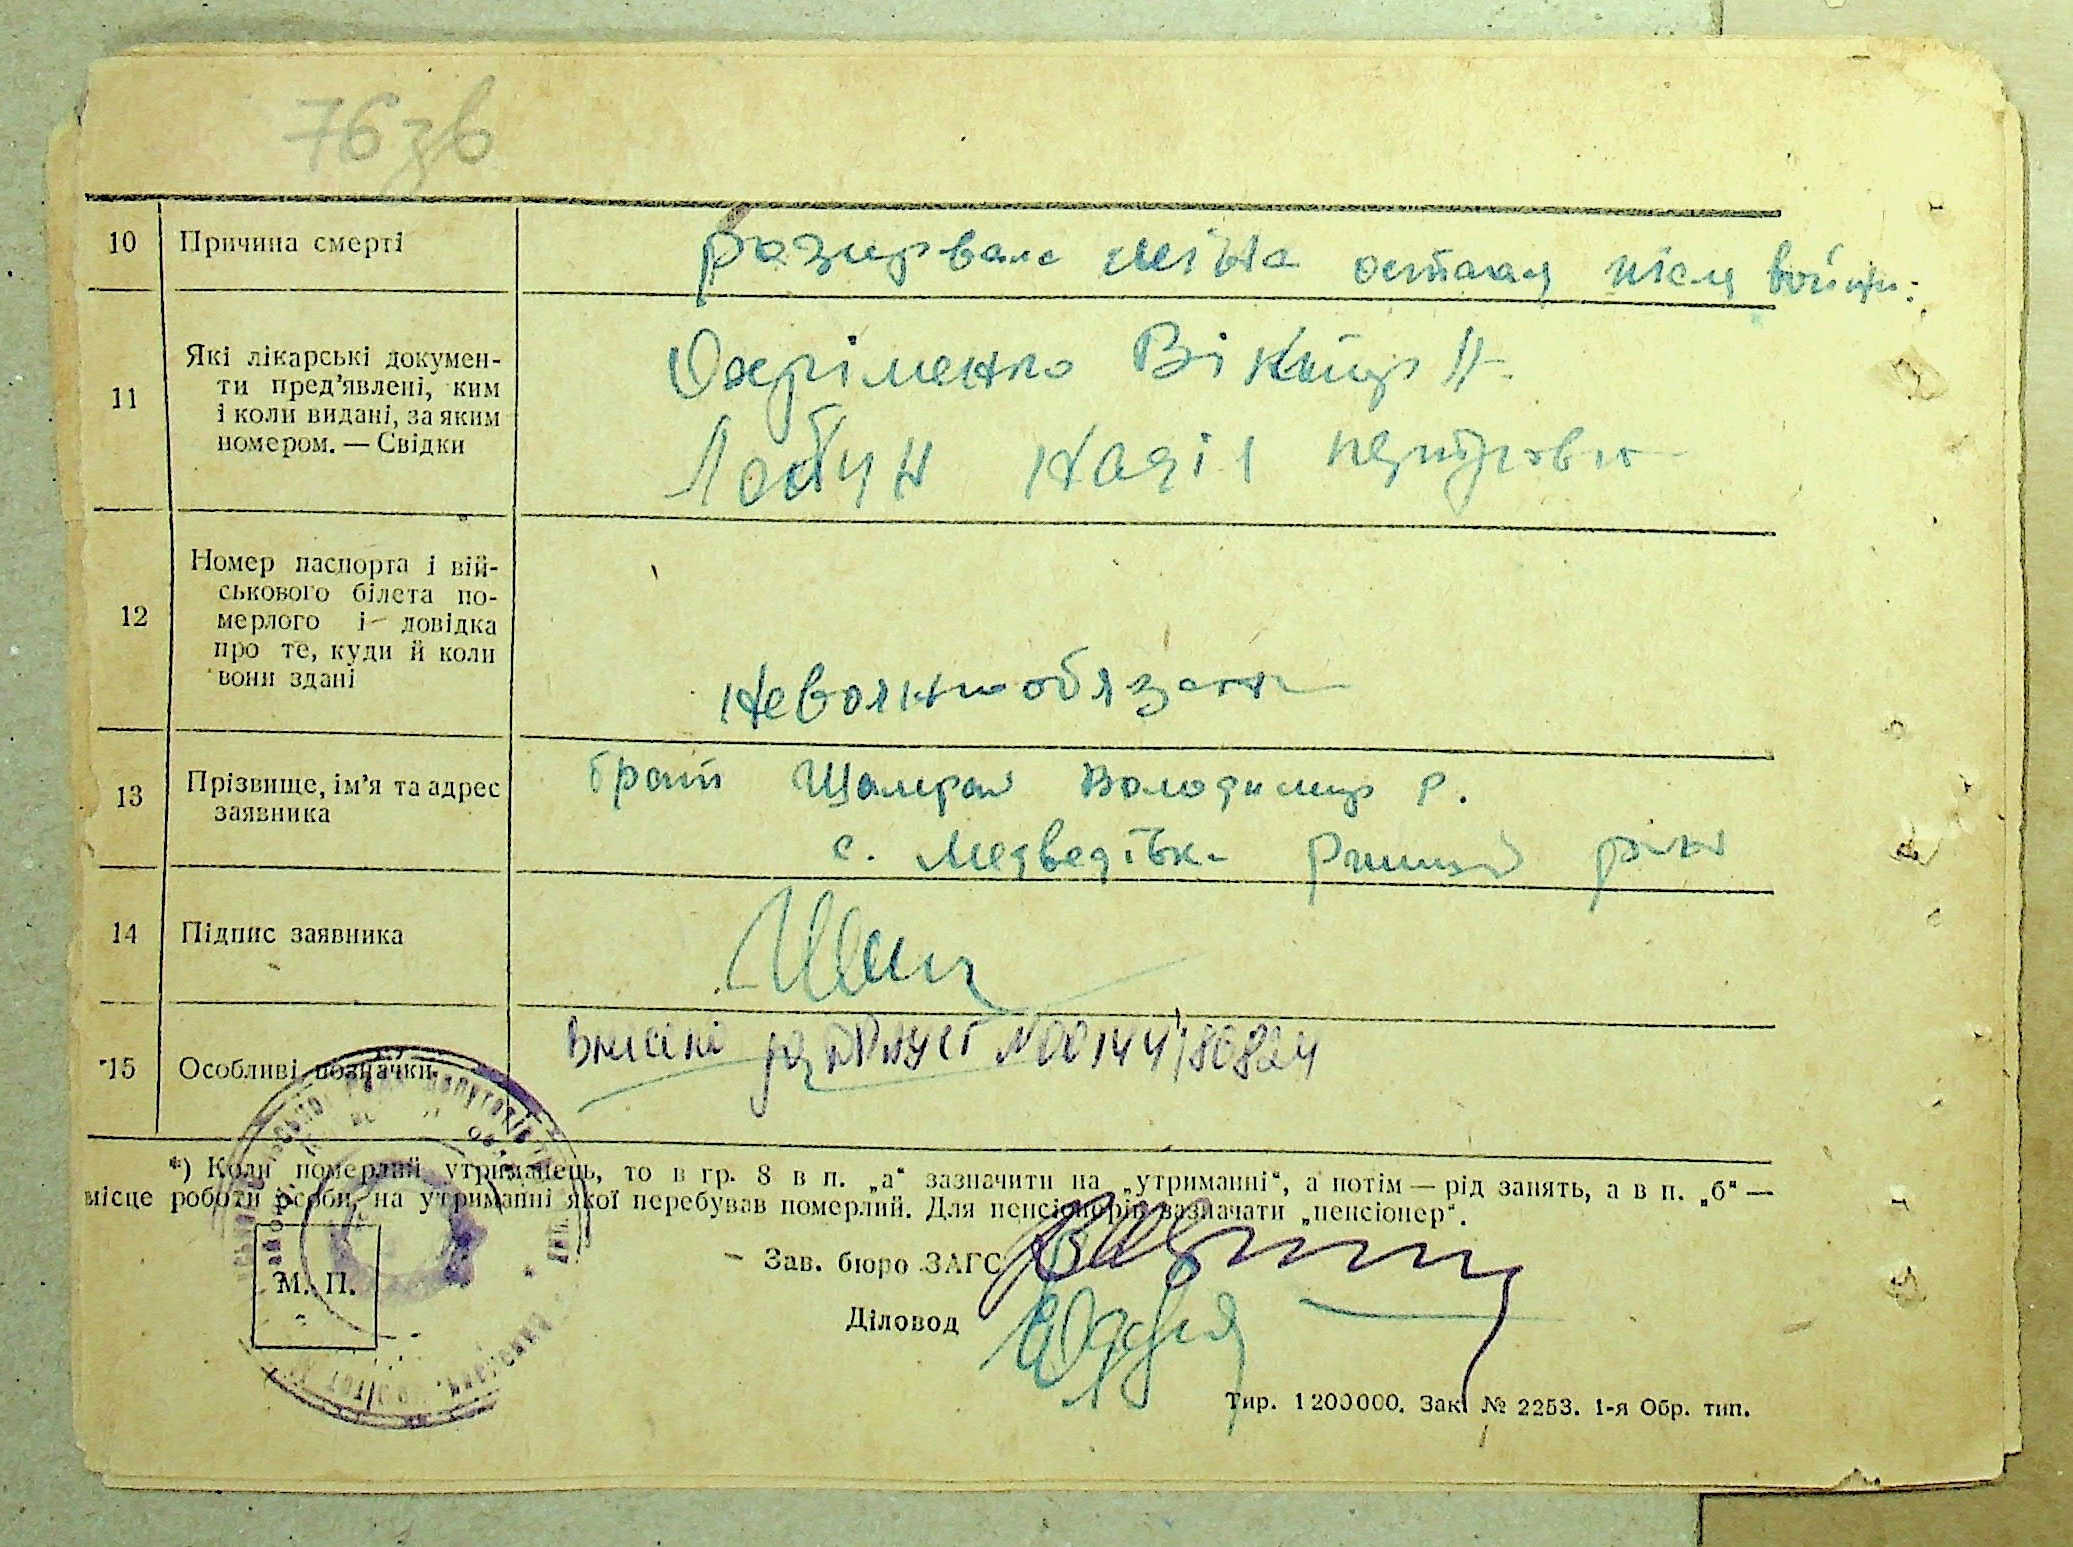 76 зв
10 Причина смерті
розирвала міна остала після войни.
11 Які лікарські докумен-
ти пред'явлені, ким
і коли видані, за яким
номером. — Свідки
Охріменко Віктор Н.
Лобун Надія Петровна
12 Номер паспорта і вій-
ськового білета по-
мерлого і довідка
про те, куди й коли
вони здані
13 Прізвище, ім'я та адрес
заявника
брат Володимир Р.
с. Медведівка
14 Підпис заявника
15 Особливі позначки
Внесені № 00144186824
*) Коли померлий утриманець, то в гр. 8 в п. „а“ зазначити на „утриманні“, а потім — рід занять, а в п. „б“ —
місце роботи особи, на утриманні якої перебував померлий. Для пенсіонерів зазначати „пенсіонер“.
М. П.
Зав. бюро ЗАГС
Діловод
Тир. 1200000. Зак. № 2253. 1-я Обр. тип.